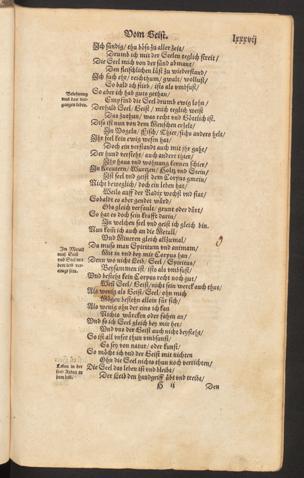 Vom Geist.
lxxxvij
Ich sündig / thu böse zu aller zeit /
Drumb ich mit der Seelen teglich streit /
Die Seel mich von der sünd abmant /
Den fleischlichen lüst zu widerstand /
Ich such ehr / reichthum / gwalt / wollust /
So bald ich stirb / ists als vmbsust /
So aber ich hab guts gethan /
Empfind die Seel drumb ewig lohn /
Derhalb Seel / Geist / mich teglich weist
Das zuthun / was recht vnd Göttlich ist.
Diß ist nun von dem Menschen erzelt /
In Vögeln / Fisch / Thier / sichs anders helt
Ihr seel kein ewig wesen hat /
Doch ein verstandt auch mit ihr gaht /
Der hund versteht / auch andere thier /
Ihr hauß vnd wohnung kennen schier /
In Kreutern / Wurtzen / Holtz vnd Stein /
Ist seel vnd geist dem Corpus gmein /
Nicht beweglich / doch ein leben hat /
Weils auß der Radix wechst vnd staht /
Sobaldt es aber gendet würd
Obs gleich verfault / grunt oder dürrt /
So hat es doch sein krafft darin /
In welchen seel vnd geist ich bin.
Nun kom ich auch an die Metall /
Vnd Mineren gleich allzumal /
Du must han Spiritum vnd animam /
Mit in vnd bey mir Corpus han /
Denn wo nicht Leib / Seel / Spiritus /
Beysammen ist / ists als vmbsust /
Vnd besteht kein Corpus recht noch gut /
Weil Seel / Geist / nicht sein wreck auch thut /
Als wenig als Geist / Seel / ohn mich
Mögen bestehn allein für sich /
Als wenig ohn der eins ich kan
Nichts würcken oder haben an /
Vnd so ich Seel gleich bey mir het /
Vnd nur des Geist auch nicht beysteht /
So ist all vnser thun vmbsust /
Es sey von natur / oder kunst /
So möcht ich vnd der Geist mit nichten
Ohn die Seel nichts thun noch verrichten /
Die Seel das leben ist vnd bleibt /
Der Leib den handgriff übt vnd treibt /
H ij
Den
In Metall
muß Leib